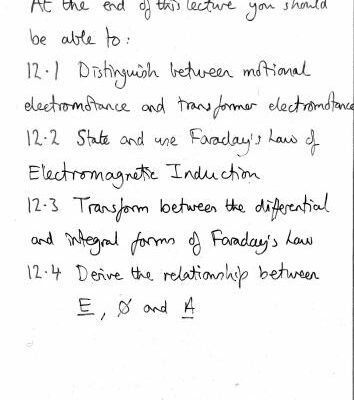 At the end of this lecture you should
be able to:
12.1 Distinguish between motional
electromotance and transformer electromotance
12.2 State and use Faraday's Law of
Electromagnetic Induction
12.3 Transform between the differential
and integral forms of Faraday's Law
12.4 Derive the relationship between
E, Ø and A